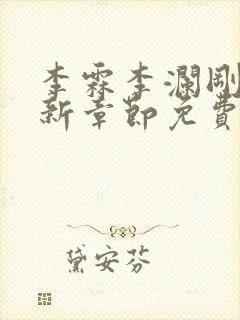 李霖李瀾剛
新章節免費
黛安芬